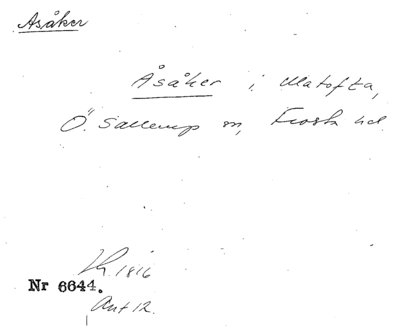 Åsåker
Åsåker i Ulatofta,
Ö. Sallerup sn, Frosta hd.
Kr. 1816
Nr 6644.
Ant 12.